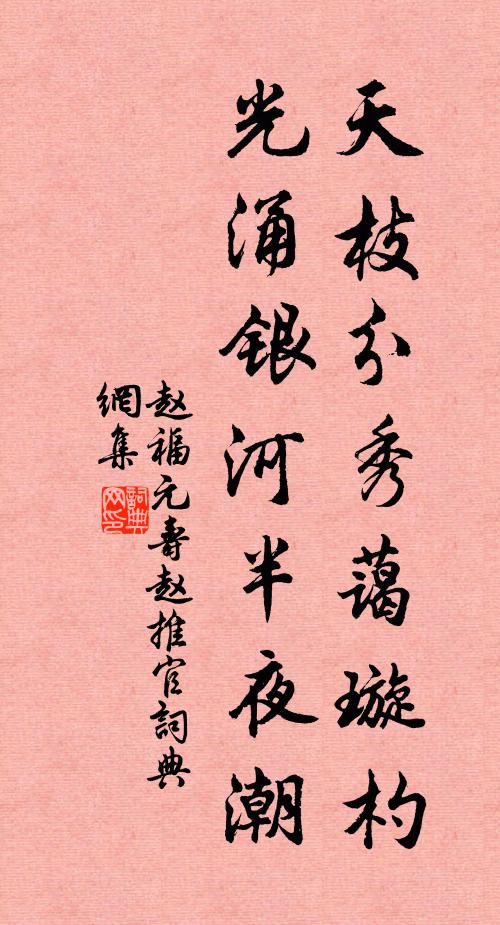 天枝分秀蔼璇杓
光涌银河半夜潮
赵福元寿赵推官詞典
網集
詞典网印